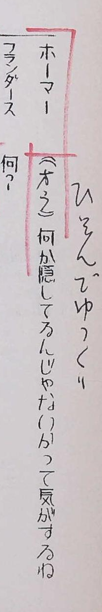 ひそんでゆっくり
ホーマー （オフ）何か隠してるんじゃないかって気がするね
フランダース 何?